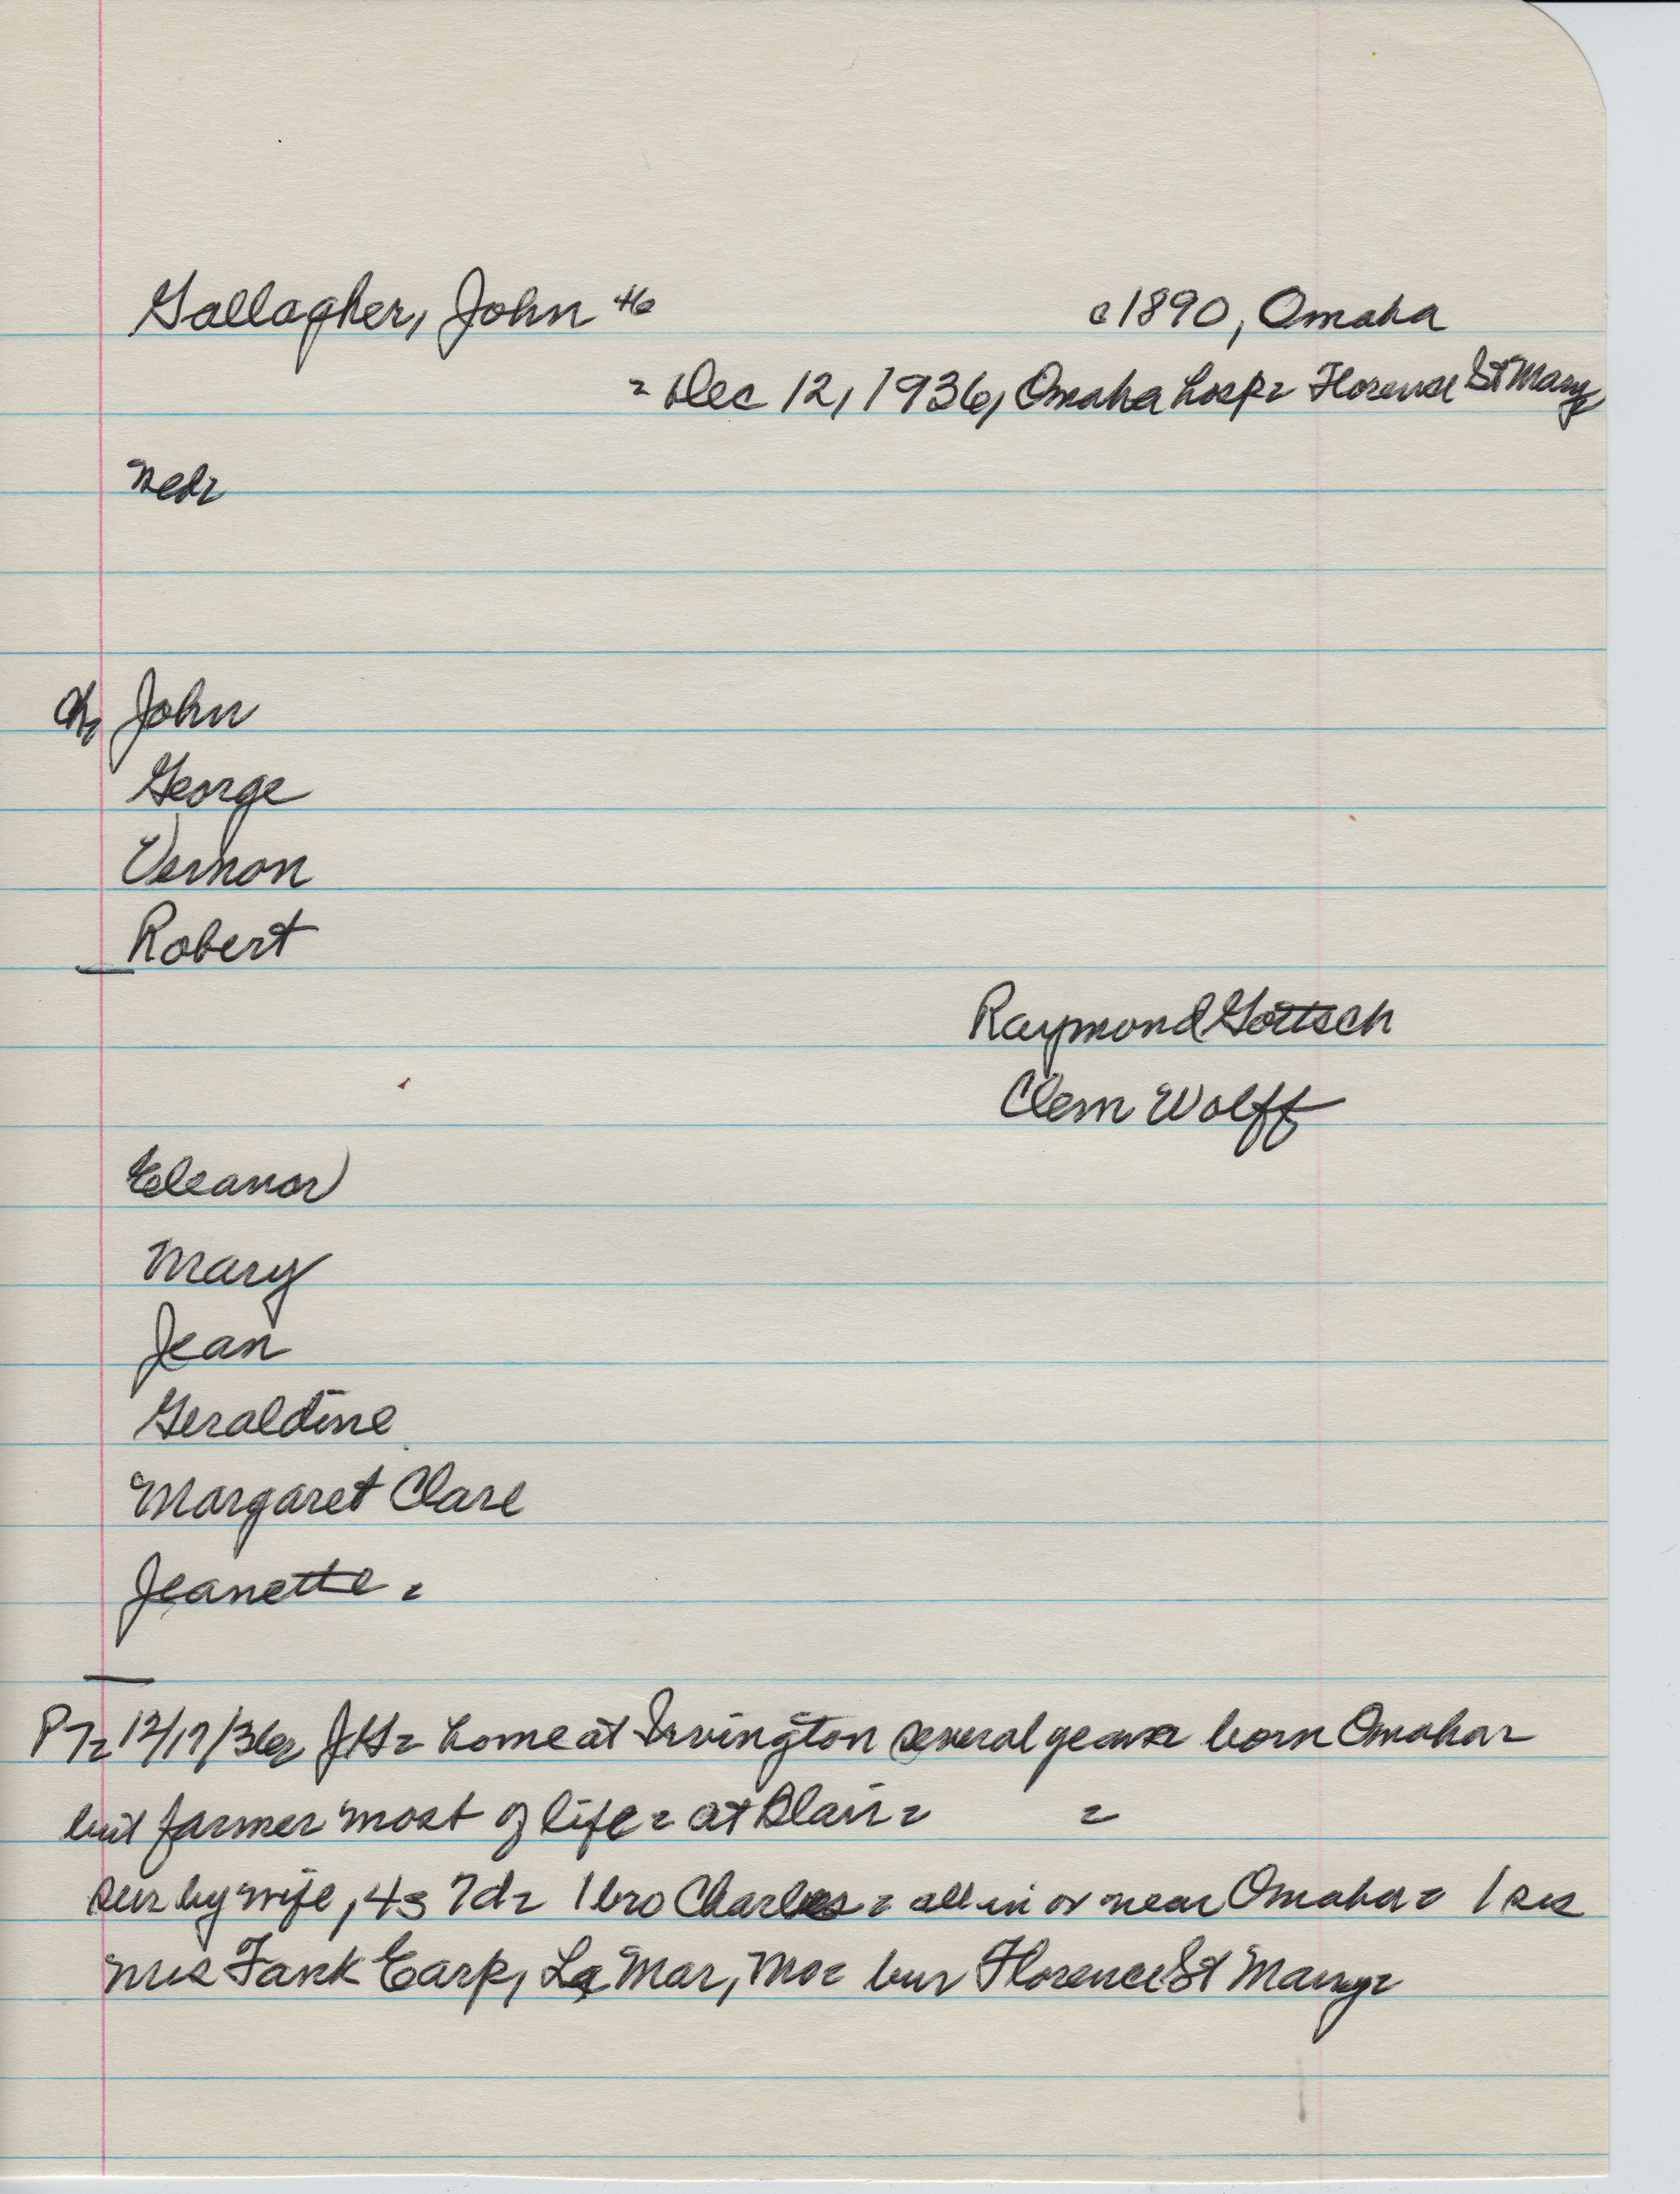 Gallagher, John 46 c1890, Omaha
= Dec 12, 1936, Omaha hosp= Florence St Mary
Neb=
ch= John
George
Vernon
Robert
Raymond Gottsch
Clem Wolff
Eleanor
Mary
Jean
Geraldine
Margaret Clare
Jeanette =
PT= 12/17/36= home at Irvington several years born Omaha=
but farmer most of life = at Blair = =
sur by wife, 4s 7d= 1 bro Charles = all in or near Omaha = 1 sis
mrs Fank Earp, La Mar, Mo= bur Florence St Mary=